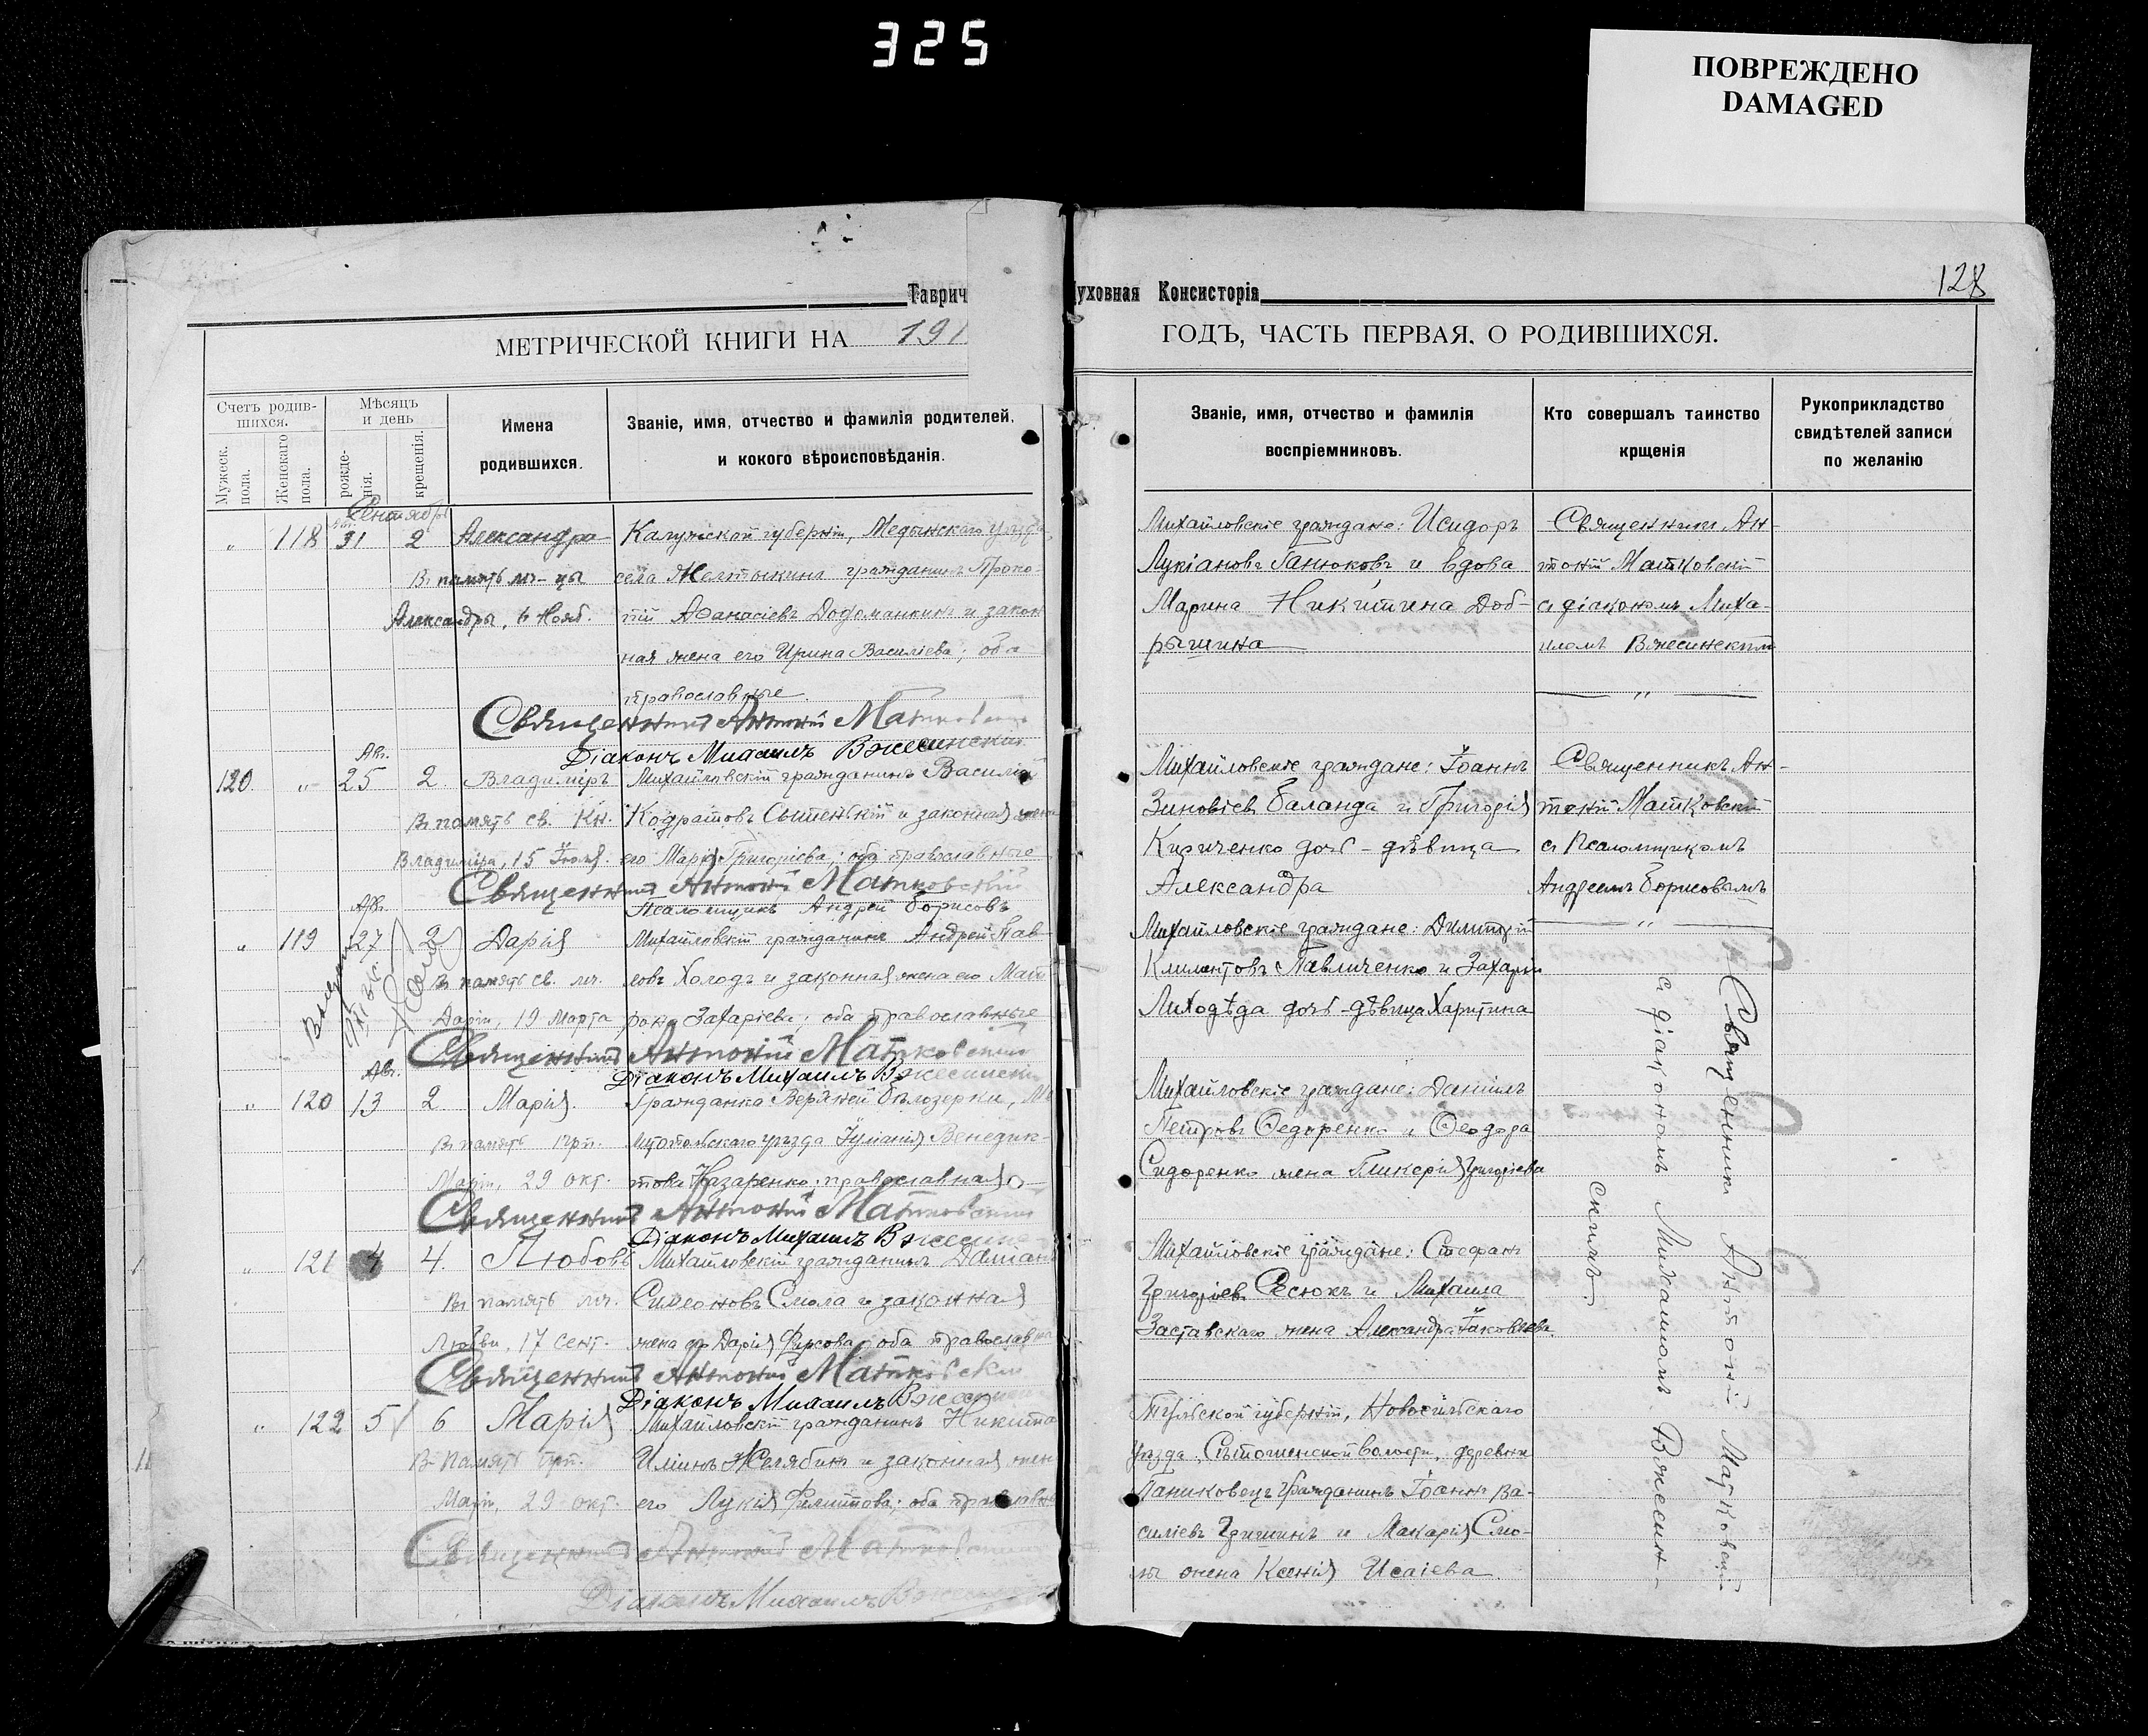 325
ПОВРЕЖДЕНО
DAMAGED
128
Таврич
уховная Консисторія
МЕТРИЧЕСКОЙ КНИГИ НА 191
ГОДЪ, ЧАСТЬ ПЕРВАЯ, О РОДИВШИХСЯ.
Счетъ родив-
шихся.
Мужеск.
пола.
Женскаго
пола.
Мѣсяцъ
и день
рожде-
нія.
крещенія.
Имена
родившихся.
Званіе, имя, отчество и фамилія родителей,
и кокого вѣроисповѣданія.
Званіе, имя, отчество и фамилія
воспріемниковъ.
Кто совершалъ таинство
крщенія
Рукоприкладство
свидѣтелей записи
по желанію
Сентябрь
Авг.
„ 118 31 2 Александра
Въ память мч-цы
Александры, 6 Нояб.
Калужской губерніи, Медынскаго уѣзда
села Желтыкина гражданинъ Проко-
пій Аѳанасіевъ Додоманкинъ и закон
ная жена его Ирина Василіева; оба
православные
Священникъ Антоній Матковскій
Діаконъ Михаилъ Вжесинскій
Михайловскіе граждане: Исидоръ
Лукіановъ Ганюковъ и вдова
Марина Никитина Доб-
рышина
Священникъ Ан-
тоній Матковскій
съ діакономъ Миха-
иломъ Вжесинскимъ
— „ —
Авг.
120. „ 25 2. Владиміръ
Въ память св. Кн.
Владиміра, 15 Іюля.
Михайловскій гражданинъ Василій
Кодратовъ Сытенькій и законная жена
его Марія Григоріева; оба православные
Священникъ Антоній Матковскій
Псаломщикъ Андрей Борисовъ
Михайловскіе граждане: Іоаннъ
Зиновіевъ Баланда и Григорія
Кириченко дочь - дѣвица
Александра
Священникъ Ан-
тоній Матковскій
съ Псаломщикомъ
Андреемъ Борисовымъ
— „ —
Авг.
„ 119 27 2 Дарія
Въ память св. мч.
Даріи, 19 Марта
Михайловскій гражданинъ Андрей Пав-
ловъ Холодъ и законная жена его
Захаріева; оба православные
Священникъ Антоній Матковскій
Діаконъ Михаилъ Вжесинскій
Михайловскіе граждане: Димитрій
Климантовъ Павличенко и Захарія
Лиходѣда дочь - дѣвица Харитина
Авг.
„ 120 13 2 Марія.
Въ память прп.
Маріи, 29 окт.
Гражданка Верхней Бѣлозерки, Ме
литопольскаго уѣзда Іуліанія Венедик-
това Назаренко; православная
Священникъ Антоній Матковскій
Діаконъ Михаилъ Вжесинск
Михайловскіе граждане: Даніилъ
Петровъ Ѳедоренко и Ѳеодора
Сидоренко жена Гликерія Григоріева
„ 121 4 4. Любовь
Въ память мч.
Любви, 17 сент.
Михайловскій гражданинъ Даміанъ
Симеоновъ Смола и законная
жена его Дарія Фирсова; оба православн
Священникъ Антоній Матковскій
Діаконъ Михаилъ Вжесинск
Михайловскіе граждане: Стефанъ
Григоріевъ Сесюкъ и Михаила
Заставскаго жена Александра Іаковлева.
„ 122 5 6 Марія
Въ память прп.
Маріи, 29 окт.
Михайловскій гражданинъ Никита
Иліинъ Желябинъ и законная жен
его Лукія Филиппова; оба православн
Священникъ Антоній Матковскій
Діаконъ Михаилъ Вжесинскій
Тульской губерніи, Новосильскаго
уѣзда, волости, деревни
Паниковецъ гражданинъ Іоаннъ Ва-
силіевъ Гришинъ и Макарія Смо-
лы жена Ксенія Исаіева.
Священникъ Антоній Матковскій
съ діакономъ Михаиломъ Вжесин-
скимъ.